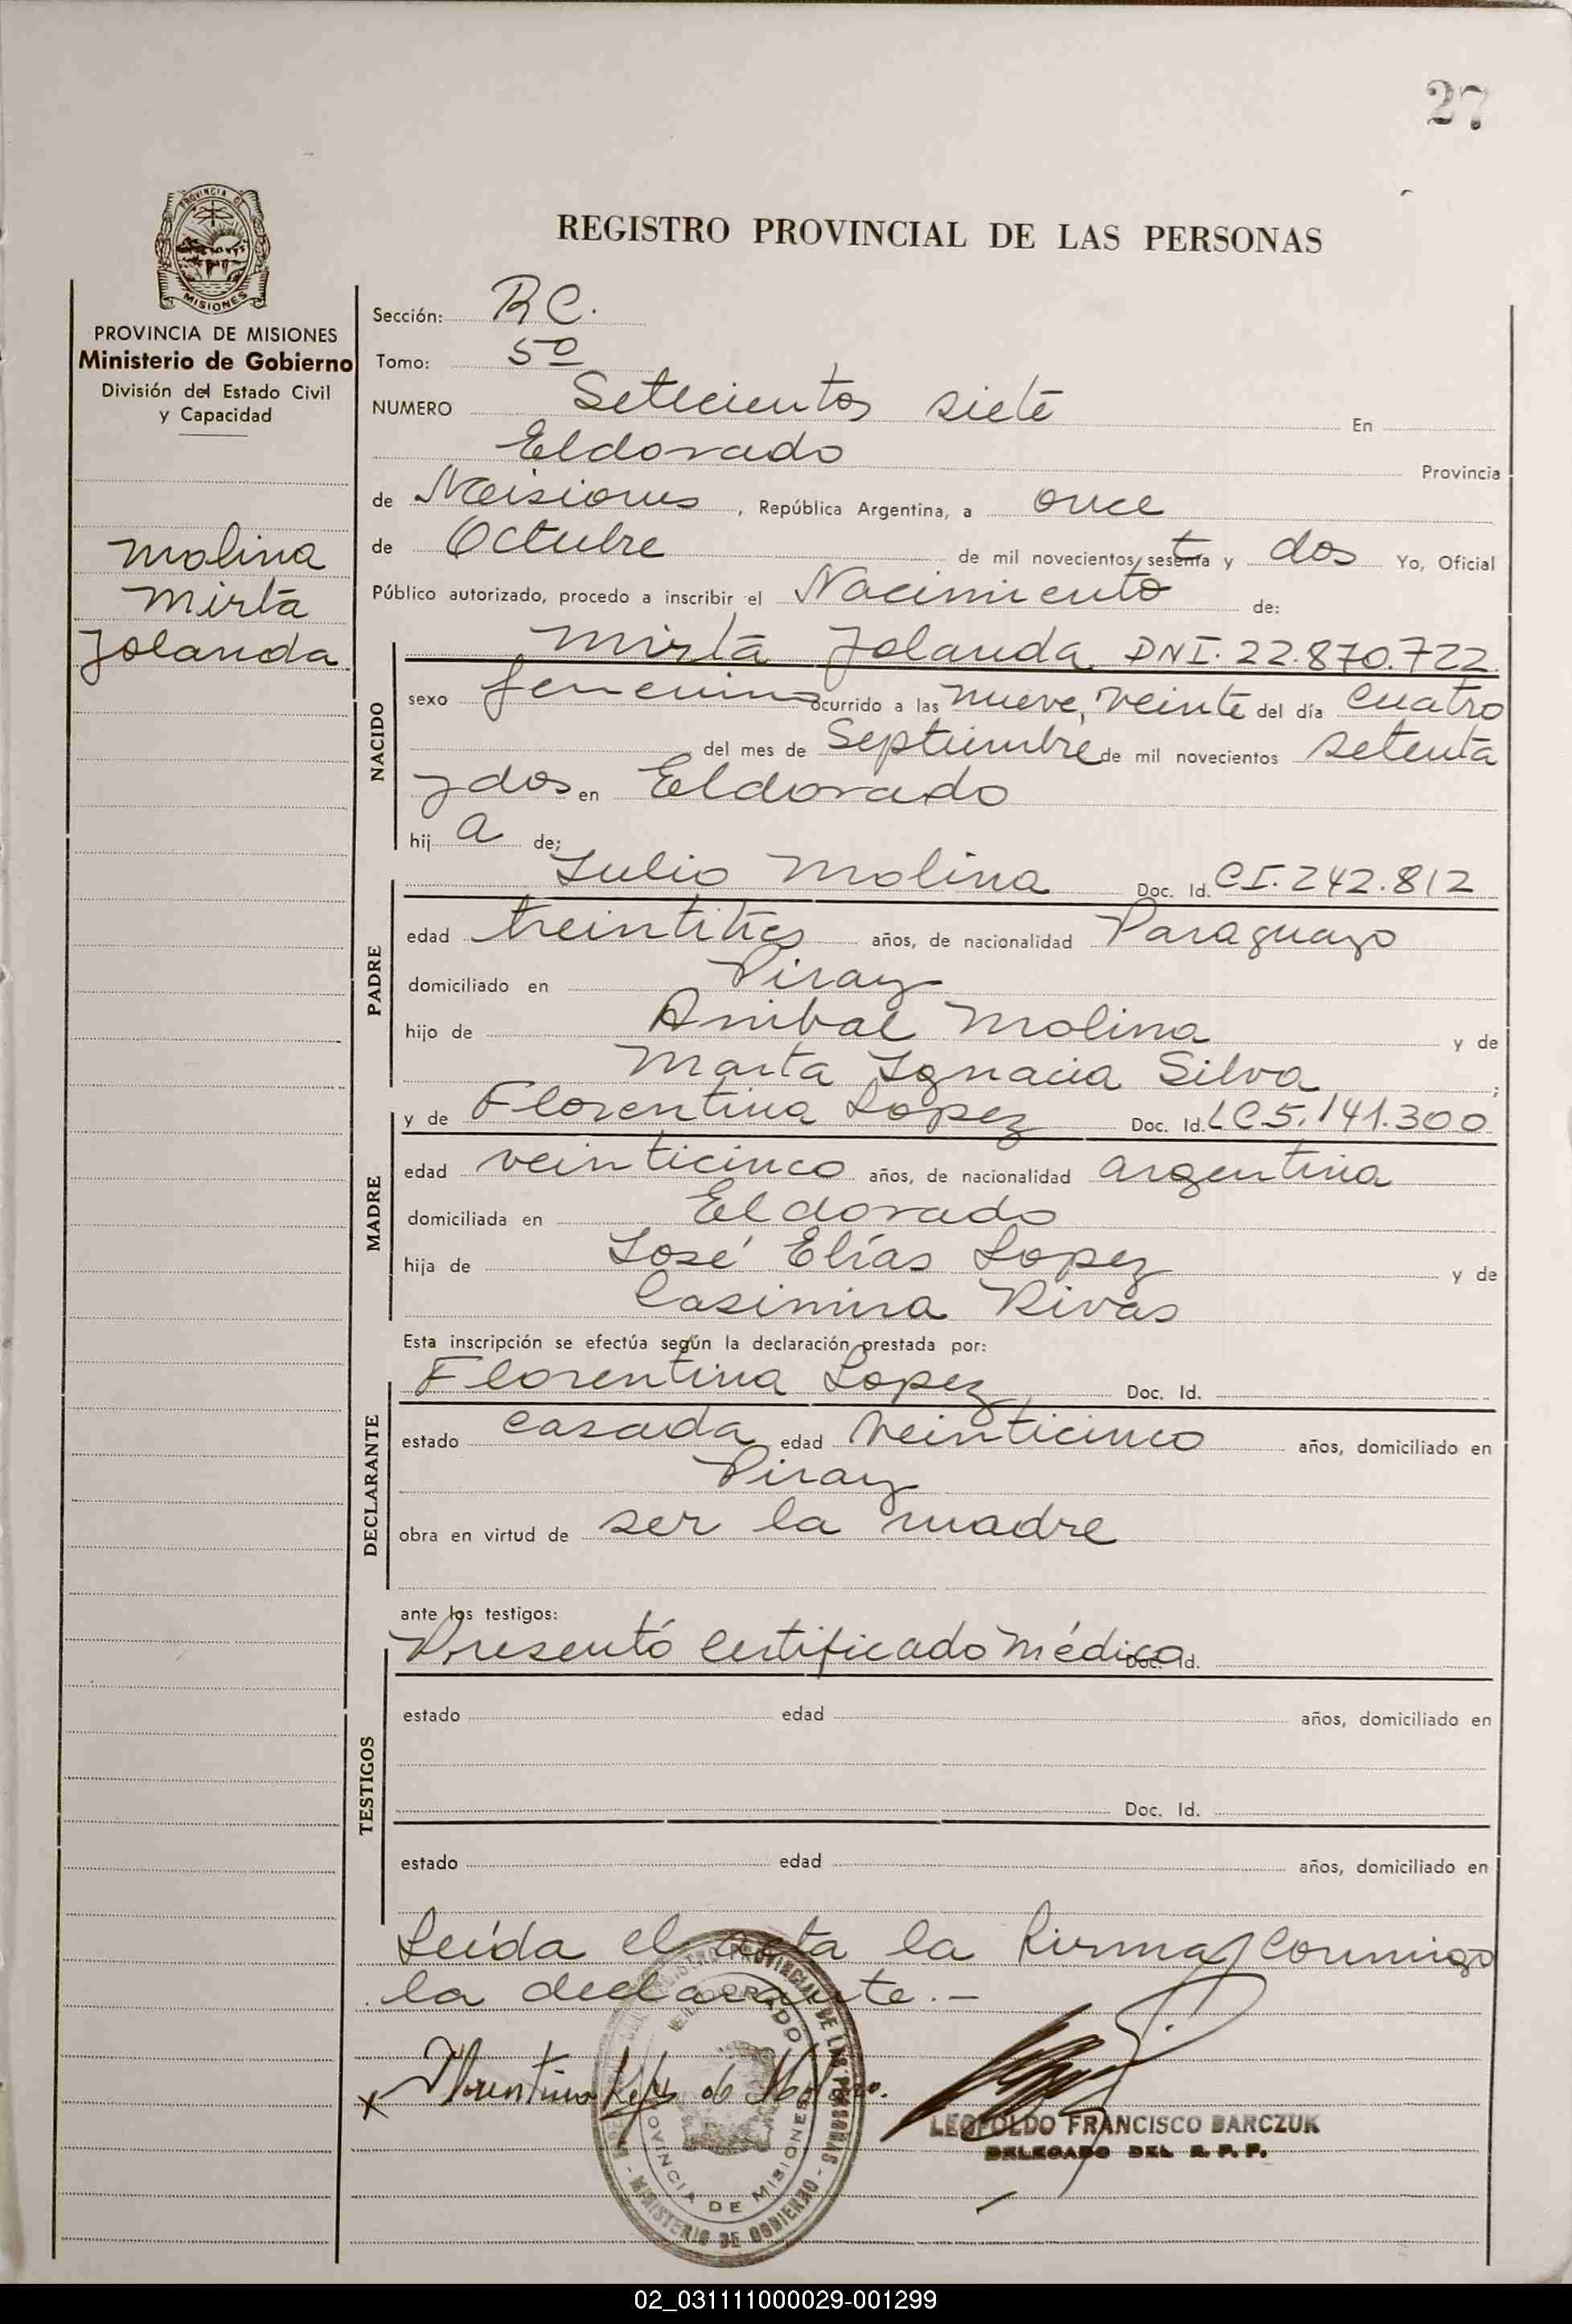 27
PROVINCIA DE
MISIONES
PROVINCIA DE MISIONES
Ministerio de Gobierno
División del Estado Civil
y Capacidad
Molina
Mirta
Jolanda
REGISTRO PROVINCIAL DE LAS PERSONAS
Sección: R C.
Tomo: 5º
NUMERO Setecientos siete En
Eldorado Provincia
de Misiones, República Argentina, a once
de Octubre de mil novecientos sesenta y dos Yo, Oficial
Público autorizado, procedo a inscribir el Nacimiento de:
NACIDO
Mirta Jolanda. DNI. 22.870.722.
sexo femenino ocurrido a las nueve, veinte del día cuatro
del mes de Septiembre de mil novecientos setenta
y dos en Eldorado
hij a de;
PADRE
Julio Molina Doc. Id. CI. 242.812
edad treintitres años, de nacionalidad Paraguayo
domiciliado en Piray
hijo de Anibal Molina y de
Marta Ignacia Silva ;
MADRE
y de Florentina Lopez Doc. Id. LC 5.141.300
edad veinticinco años, de nacionalidad argentina
domiciliada en Eldorado
hija de José Elías Lopez y de
Casimira Rivas
Esta inscripción se efectúa según la declaración prestada por:
DECLARANTE
Florentina Lopez Doc. Id.
estado casada edad veinticinco años, domiciliado en
Piray
obra en virtud de ser la madre
ante los testigos:
TESTIGOS
Presentó certificado médico Doc. Id.
estado edad años, domiciliado en
Doc. Id.
estado edad años, domiciliado en
Leída el acta la firma conmigo
la declarante.-
x Florentina Lopez de Molina.
REGISTRO PROVINCIAL DE LAS PERSONAS - MINISTERIO DE GOBIERNO -
ELDORADO
PROVINCIA DE MISIONES
LEOPOLDO FRANCISCO BARCZUK
DELEGADO DEL R. P. P.
02_031111000029-001299